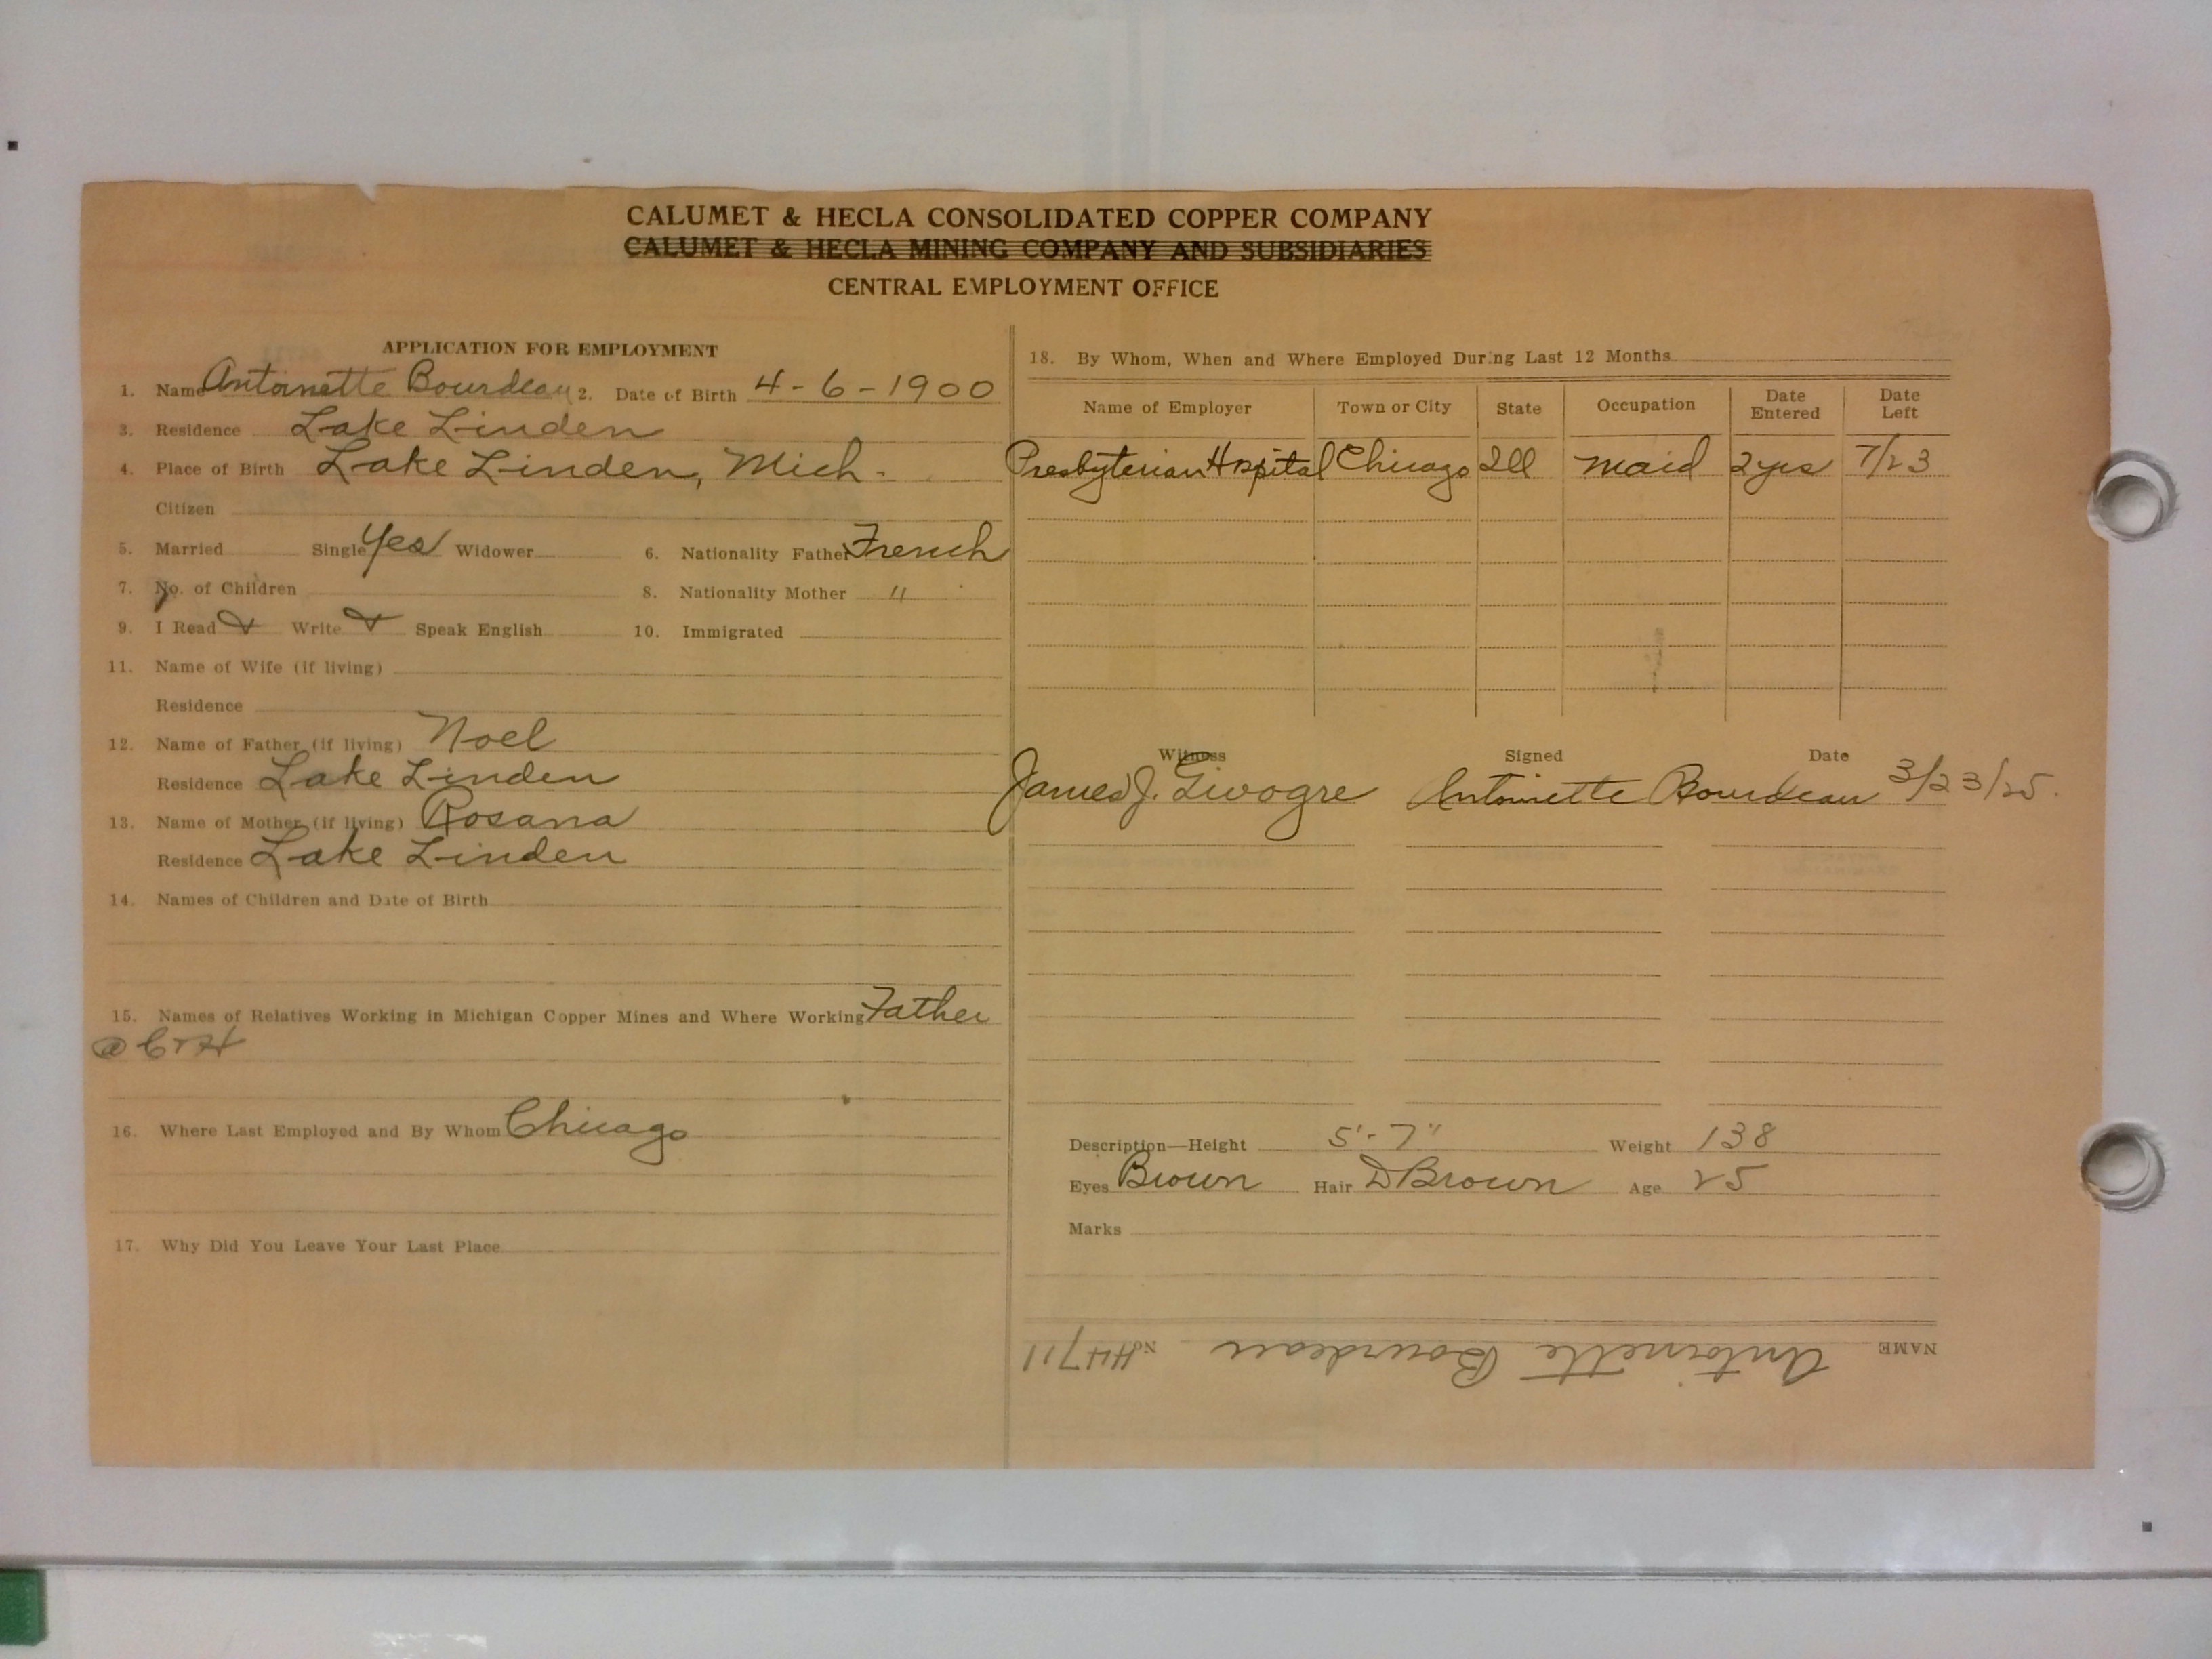 CALUMET & HECLA CONSOLIDATED COPPER COMPANY
CALUMET & HECLA MINING COMPANY AND SUBSIDIARIES
CENTRAL EMPLOYMENT OFFICE
APPLICATION FOR EMPLOYMENT
1. Name Antoinette Bourdeau 2. Date of Birth 4-6-1900
3. Residence Lake Linden
4. Place of Birth Lake Linden, Mich.
Citizen
5. Married Single Yes Widower 6. Nationality Father French
7. No. of Children 8. Nationality Mother "
9. I Read Write Speak English 10. Immigrated
11. Name of Wife (if living)
Residence
12. Name of Father (if living) Noel
Residence Lake Linden
13. Name of Mother (if living) Rosana
Residence Lake Linden
14. Names of Children and Date of Birth
15. Names of Relatives Working in Michigan Copper Mines and Where Working Father
@ C&H
16. Where Last Employed and By Whom Chicago
17. Why Did You Leave Your Last Place
18. By Whom, When and Where Employed During Last 12 Months
Name of Employer Town or City State Occupation Date Entered Date Left
Presbyterian Hospital Chicago Ill maid 2 yrs 7/23
Witness Signed Date
James J. Antoinette Bourdeau 3/23/25.
Description—Height 5'-7" Weight 138
Eyes Brown Hair D Brown Age 25
Marks
NAME Antoinette Bourdeau No. 44711